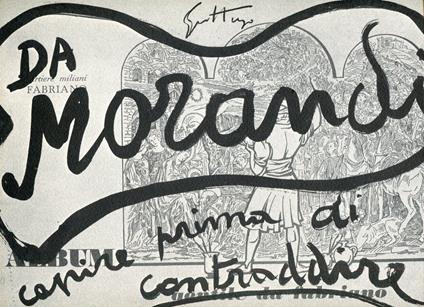 Guttuso
DA
cartiere miliani
FABRIANO
Morandi
ALBUM
capire prima di
contraddire
gentile da fabriano